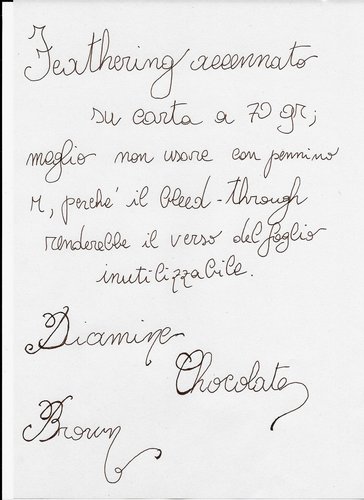 Feathering accennato
su carta a 70 gr;
meglio non usare con pennino
M, perché il bleed-through
renderebbe il verso del foglio
inutilizzabile.
Diamine
Chocolate
Brown